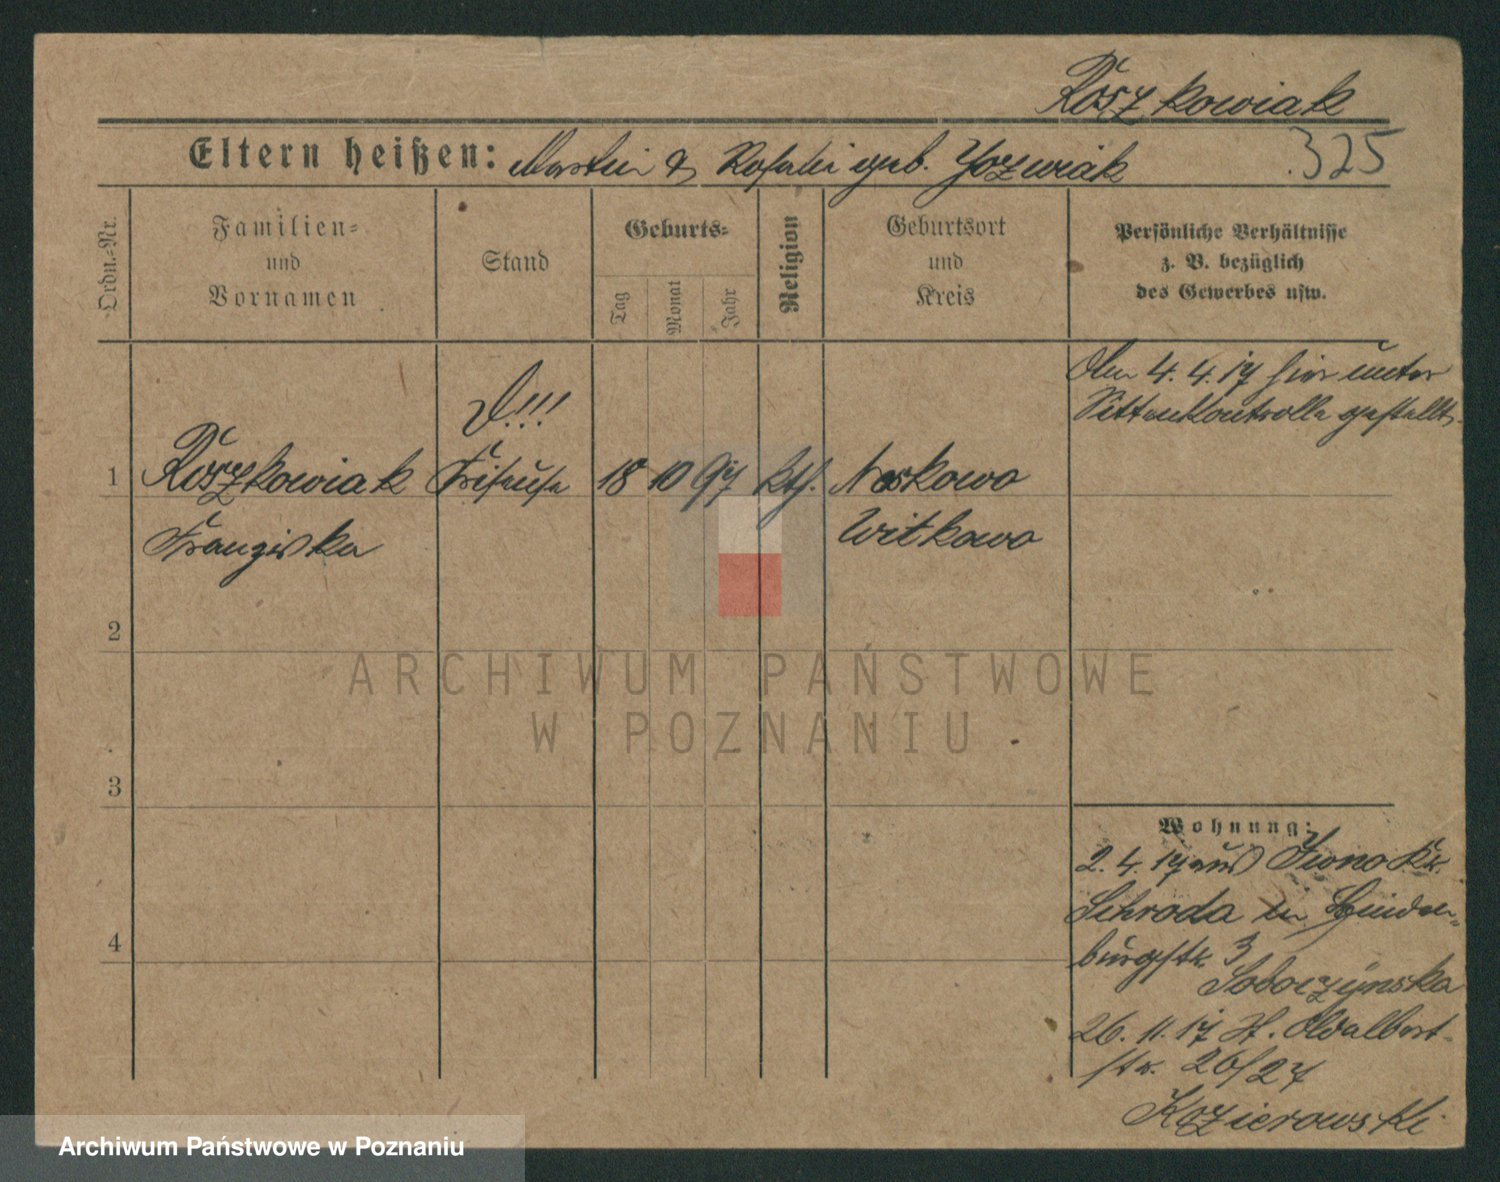 Roszkowiak
Eltern heißen: Martin & Rosalie geb. Jozwiak
325
Ordn.-Nr.
Familien-
und
Vornamen
Stand
Geburts-
Tag
Monat
Jahr
Religion
Geburtsort
und
Kreis
Persönliche Verhältnisse
z. B. bezüglich
des Gewerbes usw.
Am 4.4.17 hier unter
Sittenkontrolle gestellt.
D!!!
1 Roszkowiak Friseuse 18 10 97 kth. Noskowo
Franziska Witkowo
2
3
4
Wohnung:
2.4.17 aus Iwno Kr.
Schroda in Hinden-
burgstr. 3
Soboczynska
26.11.17 St. Adalbert-
str. 26/27
Kozierowski
ARCHIWUM PAŃSTWOWE
W POZNANIU
Archiwum Państwowe w Poznaniu